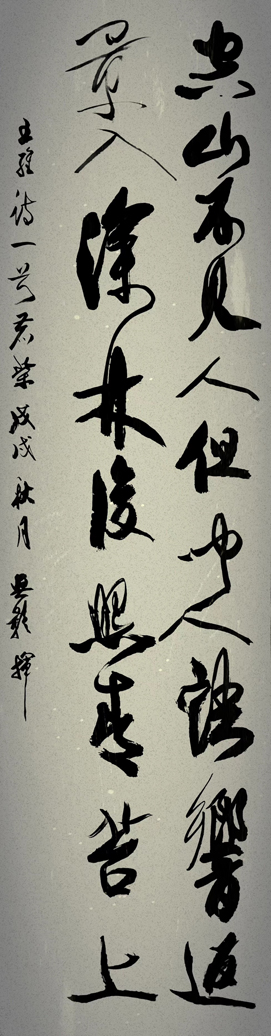 空山不見人但聞人語響返
景入深林復照青苔上
王維詩一首戊戌秋月